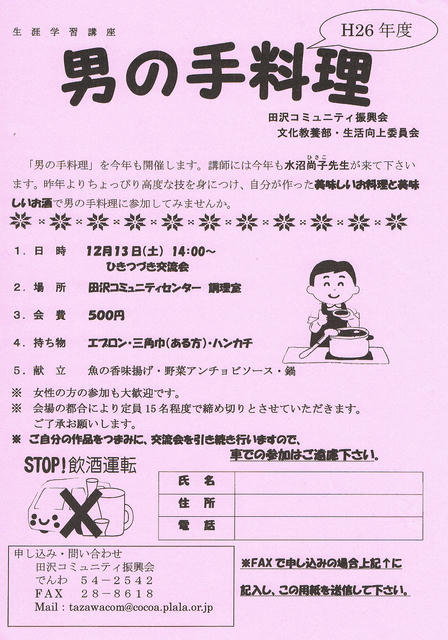 生涯学習講座
H26年度
男の手料理
田沢コミュニティ振興会
文化教養部・生活向上委員会
「男の手料理」を今年も開催します。講師には今年も水沼尚子先生が来て下さい
ひさこ
ます。昨年よりちょっぴり高度な技を身につけ、自分が作った美味しいお料理と美味
しいお酒で男の手料理に参加してみませんか。
1．日 時 12月13日(土) 14:00～
ひきつづき交流会
2．場 所 田沢コミュニティセンター 調理室
3．会 費 500円
4．持ち物 エプロン・三角巾(ある方)・ハンカチ
5．献 立 魚の香味揚げ・野菜アンチョビソース・鍋
※ 女性の方の参加も大歓迎です。
※ 会場の都合により定員15名程度で締め切りとさせていただきます。
ご了承お願いします。
※ ご自分の作品をつまみに、交流会を引き続き行いますので、
車での参加はご遠慮下さい。
STOP!飲酒運転
氏 名
住 所
電 話
申し込み・問い合わせ
田沢コミュニティ振興会
でんわ 54－2542
FAX 28－8618
Mail：tazawacom@cocoa.plala.or.jp
※FAXで申し込みの場合上記↑に
記入し、この用紙を送信して下さい。